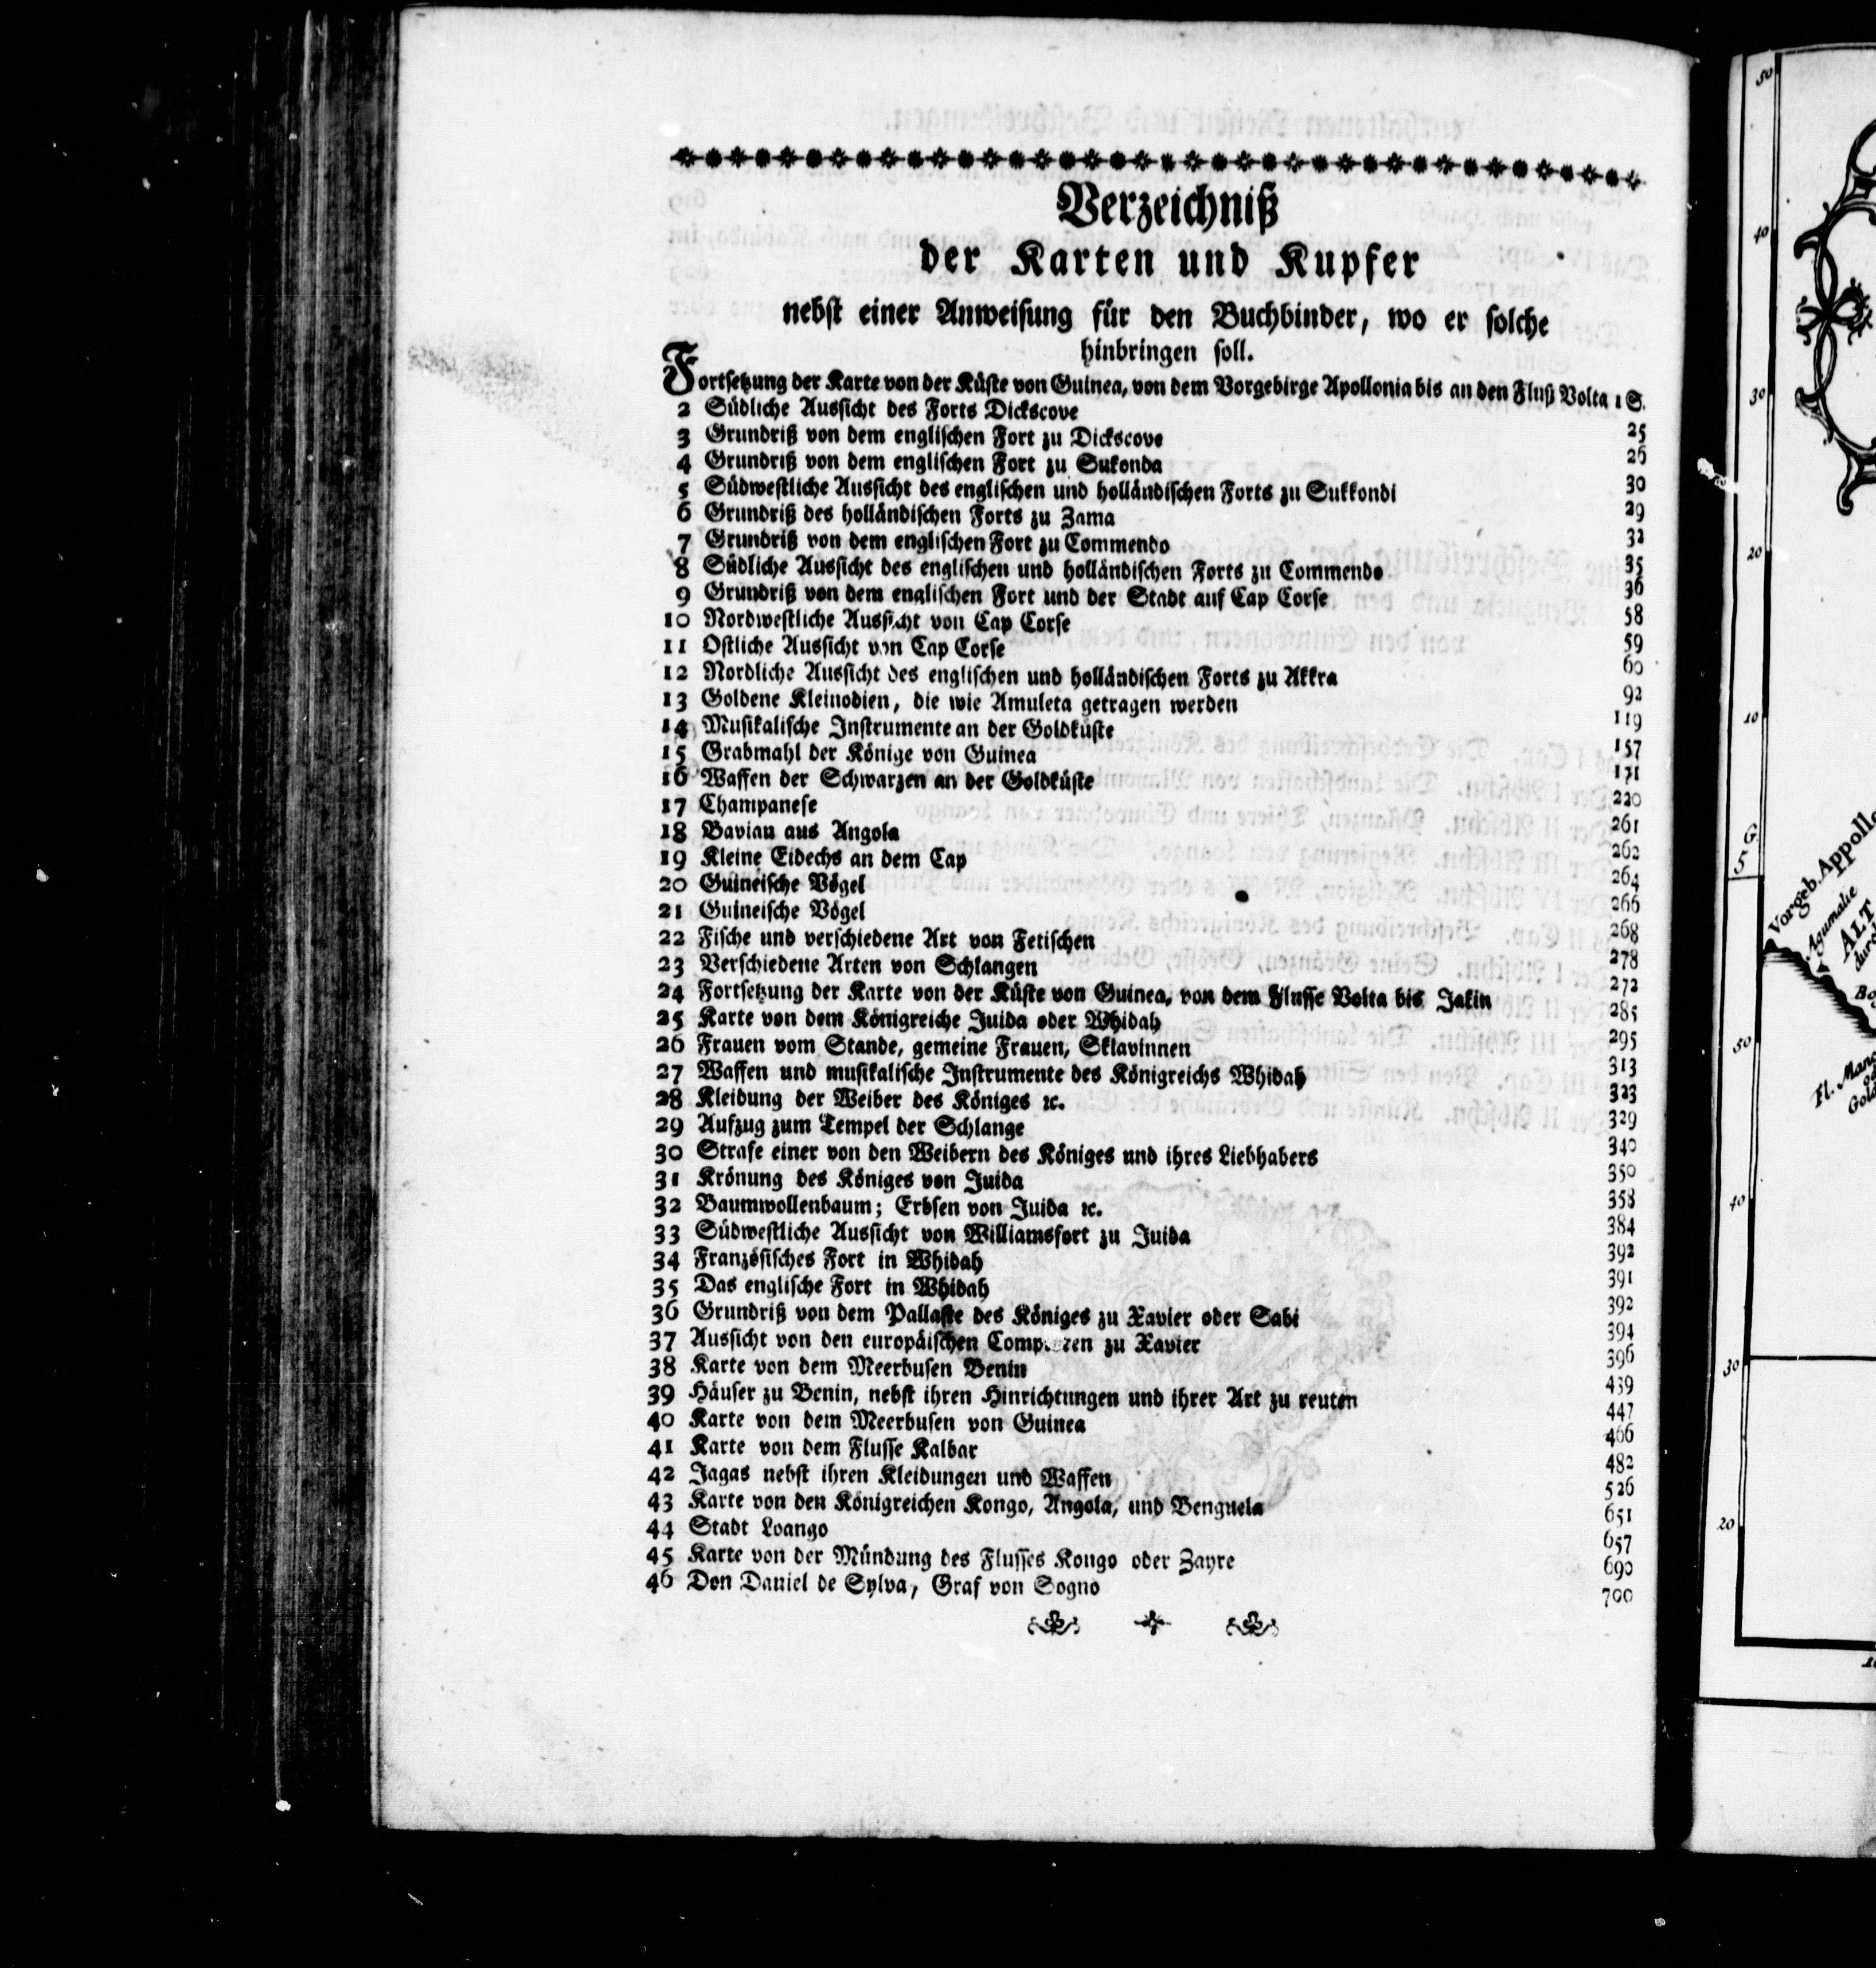 Verzeichniß
der Karten und Kupfer
nebst einer Anweisung für den Buchbinder, wo er solche
hinbringen soll.
Fortsetzung der Karte von der Küste von Guinea, von dem Vorgebirge Apollonia bis an den Fluß Volta 1 S.
2 Südliche Aussicht des Forts Dickscove 25
3 Grundriß von dem englischen Fort zu Dickscove 26
4 Grundriß von dem englischen Fort zu Sukonda 30
5 Südwestliche Aussicht des englischen und holländischen Forts zu Sukkondi 29
6 Grundriß des holländischen Forts zu Zama 32
7 Grundriß von dem englischen Fort zu Commendo 35
8 Südliche Aussicht des englischen und holländischen Forts zu Commendo 36
9 Grundriß von dem englischen Fort und der Stadt auf Cap Corse 58
10 Nordwestliche Aussicht von Cap Corse 59
11 Ostliche Aussicht von Cap Corse 60
12 Nordliche Aussicht des englischen und holländischen Forts zu Akkra 92
13 Goldene Kleinodien, die wie Amuleta getragen werden 119
14 Musikalische Instrumente an der Goldküste 157
15 Grabmahl der Könige von Guinea 171
16 Waffen der Schwarzen an der Goldküste 220
17 Champanese 261
18 Bavian aus Angola 262
19 Kleine Eidechs an dem Cap 264
20 Guineische Vögel 266
21 Guineische Vögel 268
22 Fische und verschiedene Art von Fetischen 278
23 Verschiedene Arten von Schlangen 272
24 Fortsetzung der Karte von der Küste von Guinea, von dem Flusse Volta bis Jakin 285
25 Karte von dem Königreiche Juida oder Whidah 295
26 Frauen vom Stande, gemeine Frauen, Sklavinnen 313
27 Waffen und musikalische Instrumente des Königreichs Whidah 323
28 Kleidung der Weiber des Königes ꝛc. 329
29 Aufzug zum Tempel der Schlange 340
30 Strafe einer von den Weibern des Königes und ihres Liebhabers 350
31 Krönung des Königes von Juida 358
32 Baumwollenbaum; Erbsen von Juida ꝛc. 384
33 Südwestliche Aussicht von Williamsfort zu Juida 392
34 Französisches Fort in Whidah 391
35 Das englische Fort in Whidah 392
36 Grundriß von dem Pallaste des Königes zu Xavier oder Sabi 394
37 Aussicht von den europäischen zu Xavier 396
38 Karte von dem Meerbusen Benin 439
39 Häuser zu Benin, nebst ihren Hinrichtungen und ihrer Art zu reuten 447
40 Karte von dem Meerbusen von Guinea 466
41 Karte von dem Flusse Kalbar 482
42 Jagas nebst ihren Kleidungen und Waffen 526
43 Karte von den Königreichen Kongo, Angola, und Benguela 651
44 Stadt Loango 657
45 Karte von der Mündung des Flusses Kongo oder Zayre 690
46 Don Daniel de Sylva, Graf von Sogno 700
50
40
30
20
10
G
5
50
40
30
20
Vorgeb. Appoll
Agumalie
ALT
durch
Fl. Manc
Gold